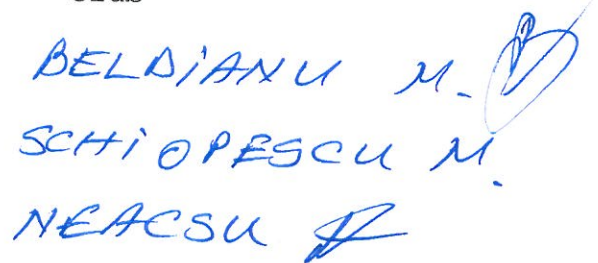 BELDiANU M.
SCHiOPESCU M.
NEACSU